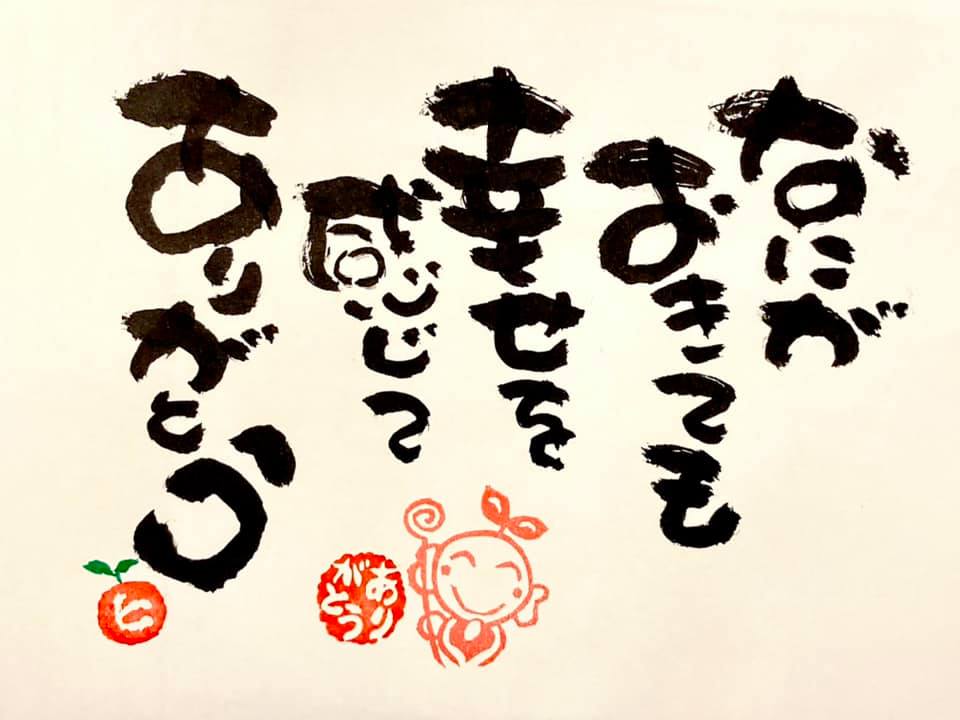 なにが
おきても
幸せを
感じて
ありがとう
ありがとう
ヒ